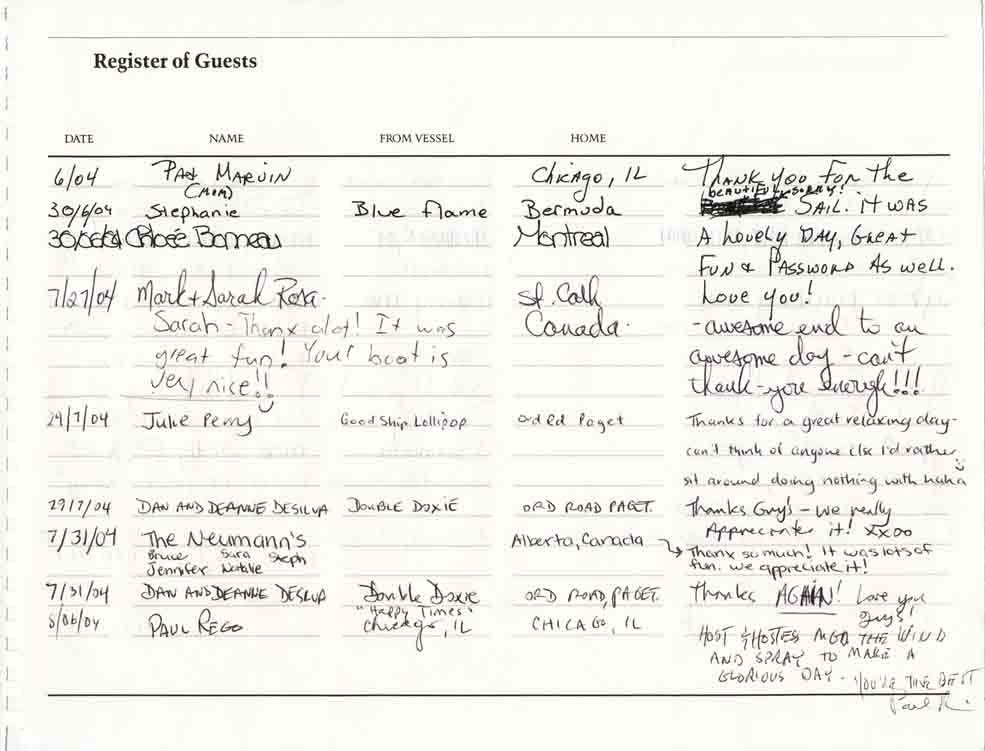 Register of Guests
DATE NAME FROM VESSEL HOME
6/04 PAT MARVIN Chicago, IL THANK YOU FOR the
(MOM) BEAUTIFUL SORRY!
30/6/04 Stephanie Blue Flame Bermuda SAIL. IT WAS
30/06/04 Borneau Montreal A LOVELY DAY, GREAT
FUN & PASSWORD AS WELL.
7/27/04 Mark + Sarah Rosa. St. Cath LOVE YOU!
Sarah - Thanx alot! It was Canada. - awesome end to an
great fun! Your boat is awesome day - can't
very nice!! thank-you enough!!!
29/7/04 Julie Perry Good Ship Lollipop Ord Rd Paget Thanks for a great relaxing day -
can't think of anyone else I'd rather
sit around doing nothing with haha
29/7/04 DAN AND DEANNE DESILVA DOUBLE DOXIE ORD ROAD PAGET. Thanks Guy's - we really
Appreciate it! xxoo
7/31/04 The Neumann's Alberta, Canada Thanx so much! It was lots of
Bruce Sara Steph fun. we appreciate it!
Jennifer Natalie
7/31/04 DAN AND DEANNE DESILVA Double Doxie ORD ROAD PAGET. Thanks AGAIN! Love you
"Happy Times" guys!
8/06/04 PAUL REGO Chicago, IL CHICAGO, IL
HOST & HOSTES THE WIND
AND SPRAY TO MAKE A
GLORIOUS DAY - YOU'RE THE BEST
Paul R.